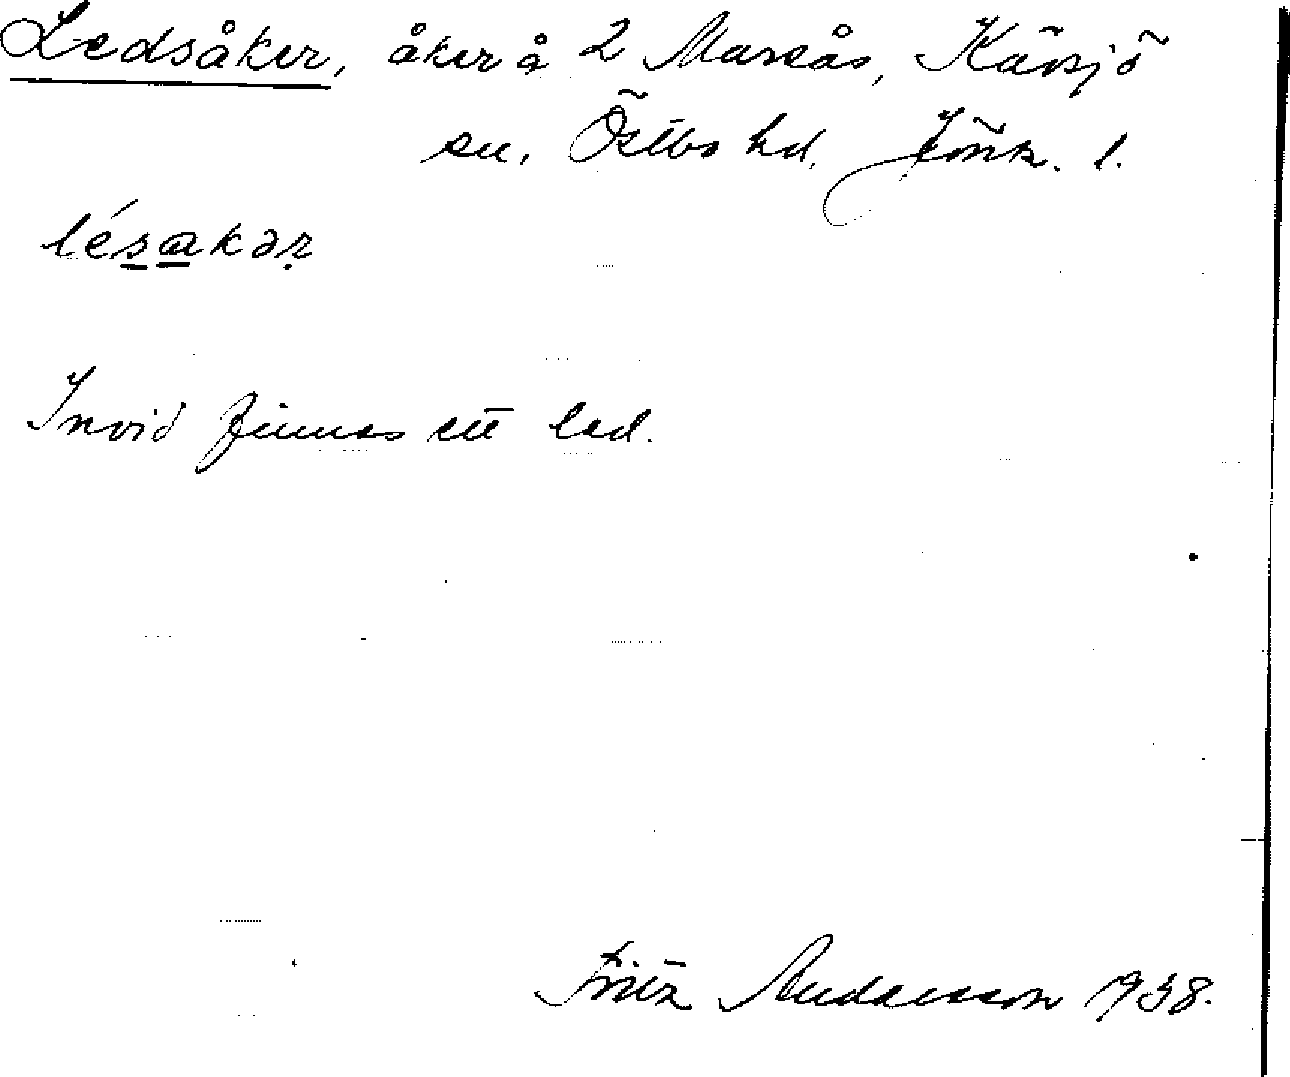 Ledsåker, åker å 2 Marås, Kävsjö
sn, Östbo hd, Jönk. l.
lésakər
Invid finnes ett led.
Fritz Andersson 1938.